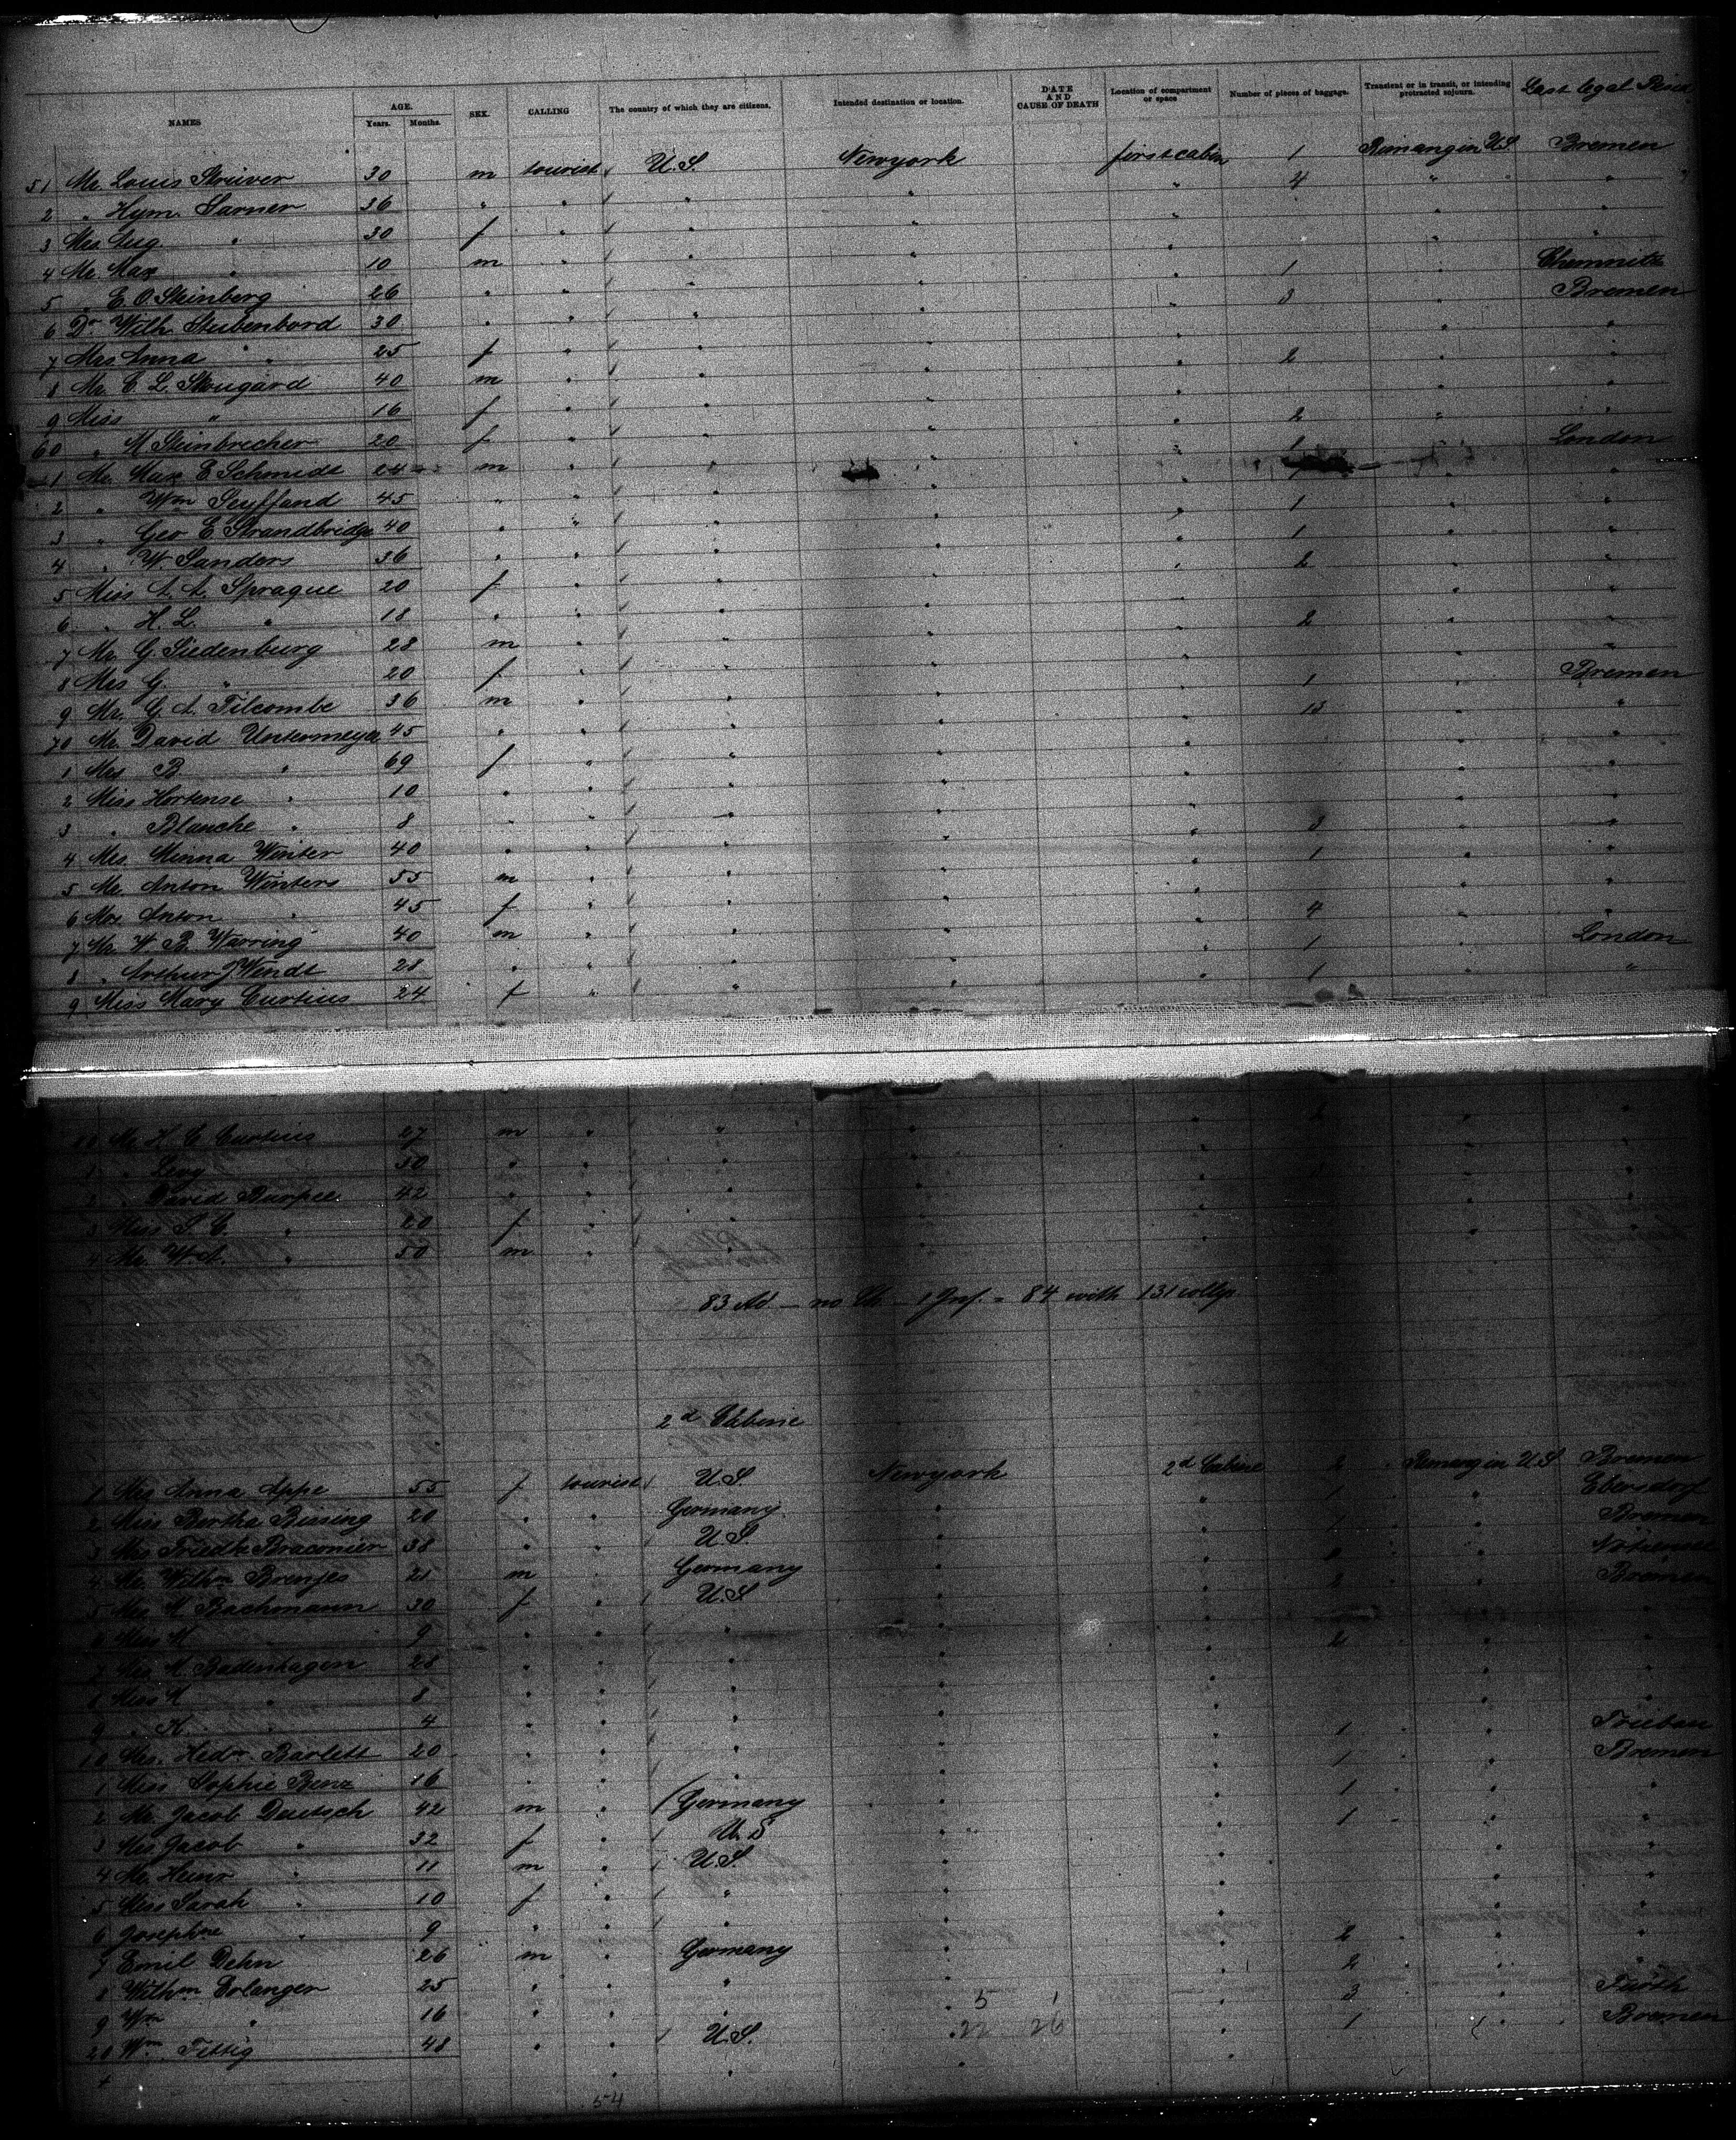 NAMES AGE. Years. Months. SEX. CALLING The country of which they are citizens. Intended destination or location. DATE AND CAUSE OF DEATH Location of compartment or space Number of pieces of baggage. Transient or in transit, or intending protracted sojourn. Last legal
51 Mr. Louis Struver 30 m tourist U.S. Newyork first cabin 1 Bremen
2 " Hym. Sarner 36 " " " " " 4 " "
3 Mrs Aug " 30 f " " " " " "
4 Mr. Max " 10 m " " " " " "
5 " E. O. Steinberg 26 " " " " " 1 " Chemnitz
6 Dr Wilh. Stubenbord 30 " " " " " 3 " Bremen
7 Mrs Anna " 25 f " " " " " "
8 Mr. C. L. Skougard 40 m " " " " 2 " "
9 Miss " 16 f " " " " " "
60 " M Steinbrecher 20 f " " " " 2 " "
1 Mr. Max E Schmidt 24 m " " " " 1 " London
2 " Wm Seyffand 45 " " " " " " "
3 " Geo E Strandbridge 40 " " " " " 1 " "
4 " W. Sanders 36 " " " " " 1 " "
5 Miss A. A. Sprague 20 f " " " " 2 " "
6 " H. L. " 18 " " " " " " "
7 Mr. G. Siedenburg 28 m " " " " 2 " "
8 Mrs G. " 20 f " " " " " "
9 Mr. G. A. Tilcombe 36 m " " " " 1 " Bremen
70 Mr. David Untermeyer 45 " " " " " 13 " "
1 Mrs B. " 69 f " " " " " "
2 Miss Hortense " 10 " " " " " " "
3 " Blanche " 8 " " " " " " "
4 Mrs. Minna Winter 40 " " " " " 3 " "
5 Mr. Anton Winters 55 m " " " " 1 " "
6 Mrs Anton " 45 f " " " " " "
7 Mr. W. B. Warring 40 m " " " " 4 " "
8 " Arthur J Wendt 28 " " " " " 1 " London
9 Miss Mary Curtius 24 f " " " " 1 " "
80 Mr. H. C. Curtius 27 m " " " " 2 " "
1 " Levy 50 " " " " " " "
2 " David Burpee 42 " " " " " " "
3 Miss S. C. " 20 f " " " " "
4 Mr. W. A. " 50 m " " " "
83 Ad. — no Ch — 1 Inf. = 84 with 131 collys
2d Cabine
1 Mrs Anna Appe 55 f tourist U.S. Newyork 2d Cabine 2 Bremen
2 Miss Bertha Bissing 20 " " Germany " " 1 " Ebersdorf
3 Mrs Friedk Braconier 38 " " U.S. " " 1 " Bremen
4 Mr. Wilhm Brenjes 21 m " Germany " " "
5 Mrs. M. Bachmann 30 f " U.S. " " 2 " Bremen
6 Miss M " 9 " " " " " "
7 Mrs. M. Badenhagen 28 " " " " " 2 " "
8 Miss M " 8 " " " " " " "
9 " K. " 4 " " " " " " "
10 Mrs. Hedw. Barlett 20 " " " " " 1 "
1 Miss Sophie Benz 16 " " " " " 1 " Bremen
2 Mr. Jacob Deutsch 42 m " Germany " " 1 " "
3 Mrs. Jacob " 32 f " U.S " " 1 " "
4 Mr. Heinr " 11 m " U.S. " " " "
5 Miss Sarah " 10 f " " " " " "
6 Josephine " 9 " " " " " " "
7 Emil Dehn 26 m " Germany " " 2 " "
8 Wilhm Erlanger 25 " " " " " 2 " "
9 Wm " 16 " " " 5 1 " 3 " Fürth
20 Wm. Fittig 48 " " U.S. 22 26 " 1 " Bremen
54